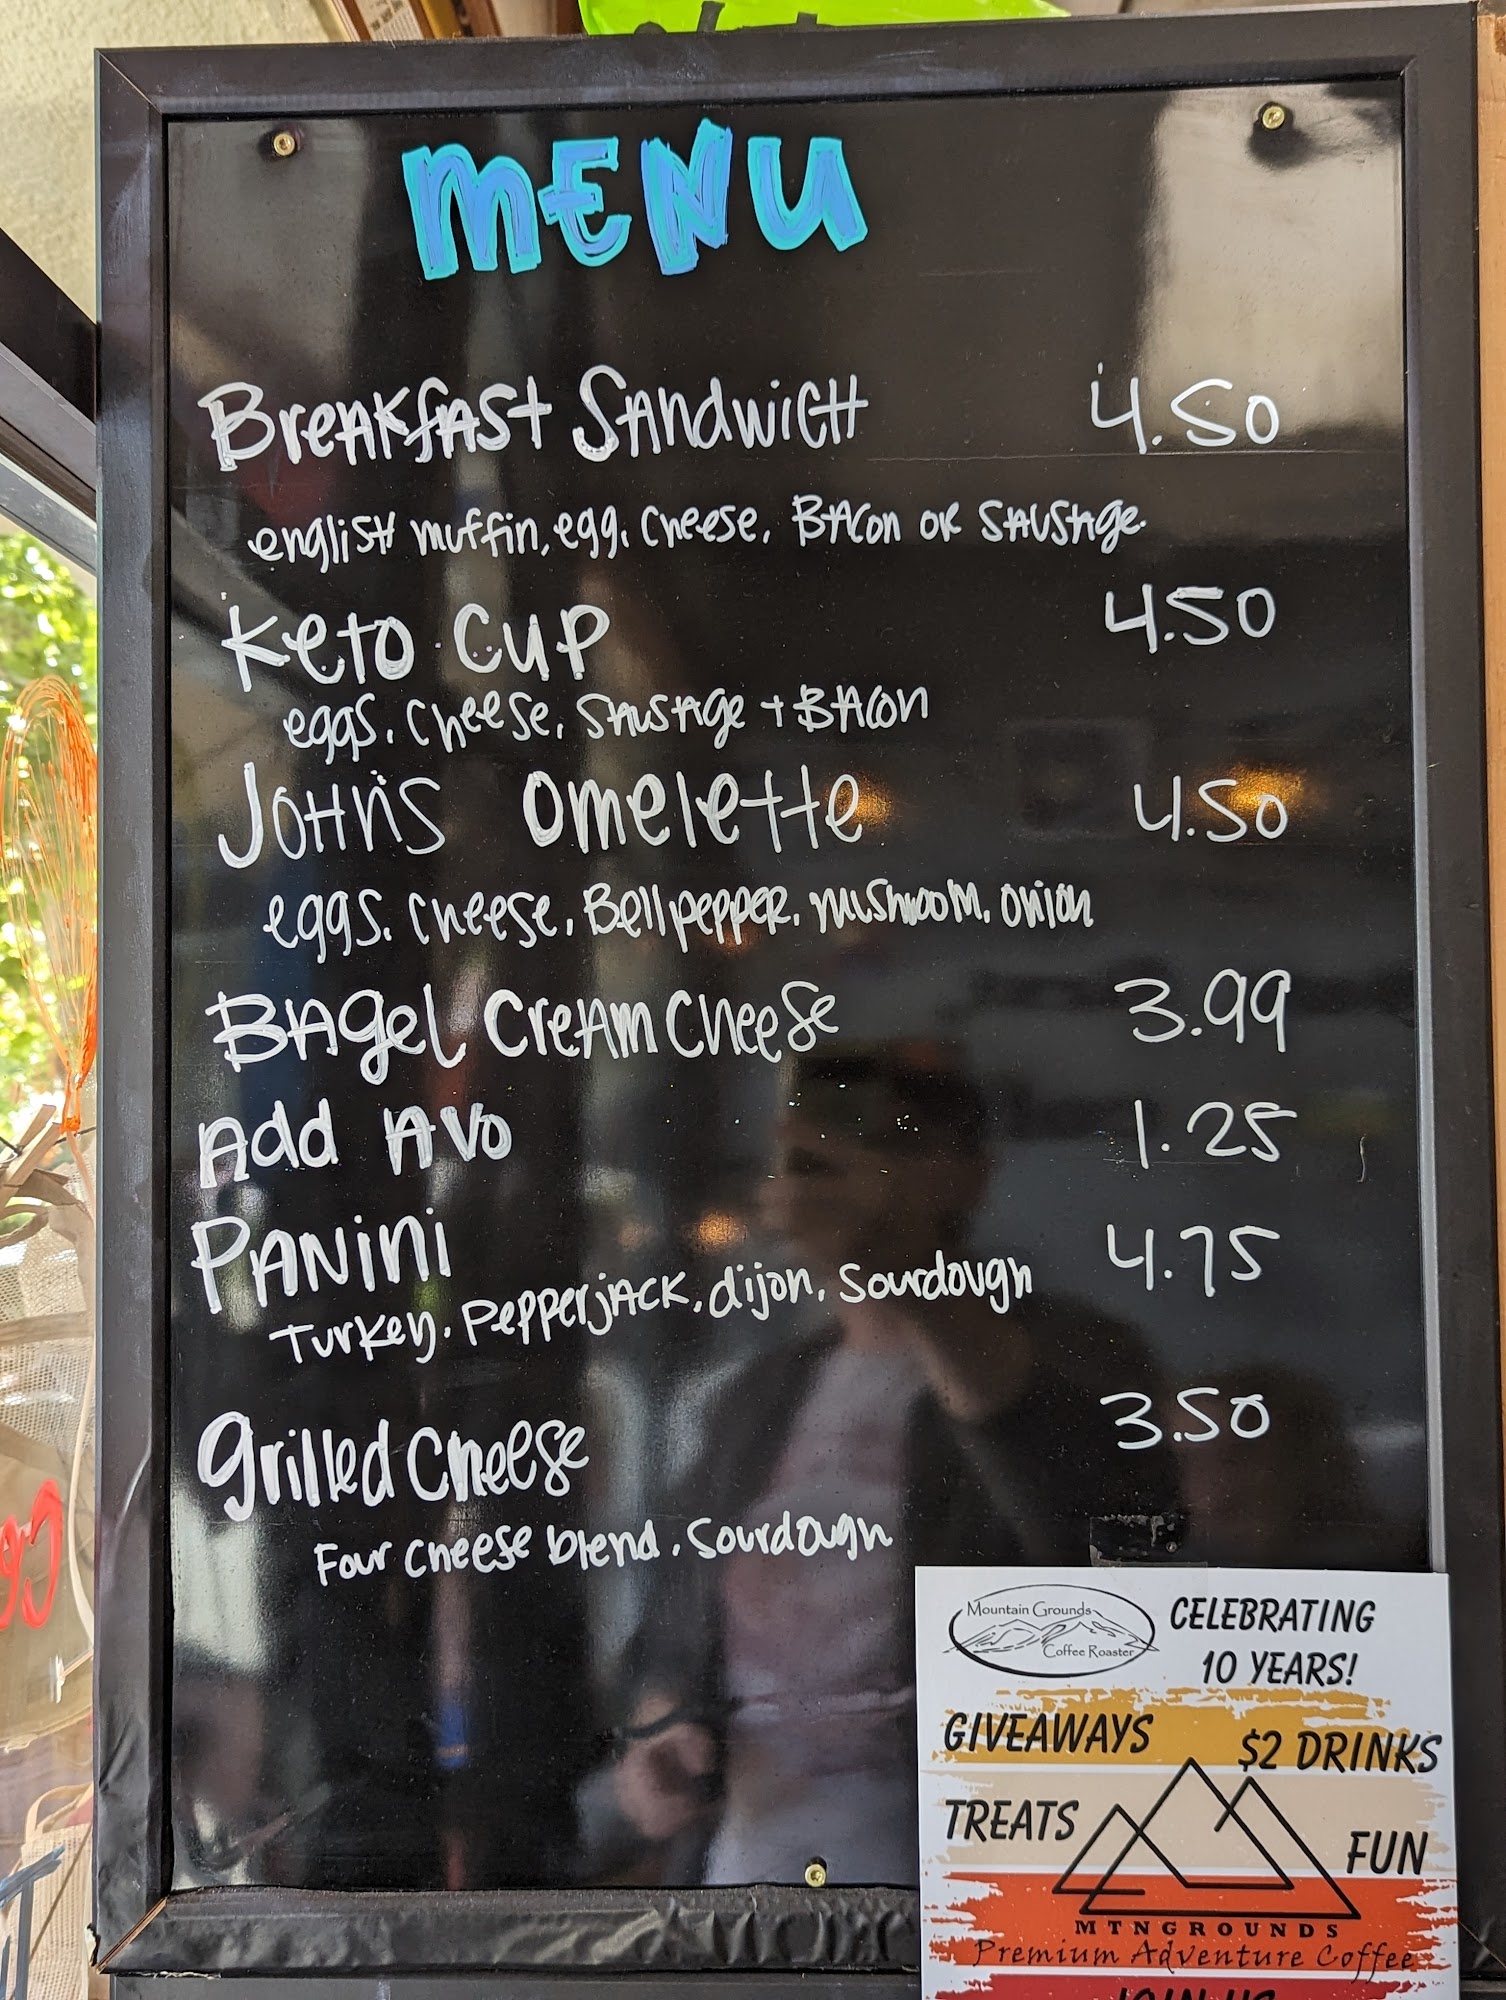 MENU
Breakfast Sandwich 4.50
english muffin, egg, cheese, Bacon or Sausage.
Keto Cup 4.50
eggs, cheese, Sausage + Bacon
John's Omelette 4.50
eggs, cheese, Bell pepper, mushroom, onion
Bagel Cream Cheese 3.99
Add Avo 1.25
Panini 4.75
Turkey, Pepperjack, dijon, Sourdough
grilled Cheese 3.50
Four cheese blend, Sourdough
Mountain Grounds
Coffee Roaster
CELEBRATING
10 YEARS!
GIVEAWAYS
$2 DRINKS
TREATS
FUN
MTNGROUNDS
Premium Adventure Coffee
JOIN US